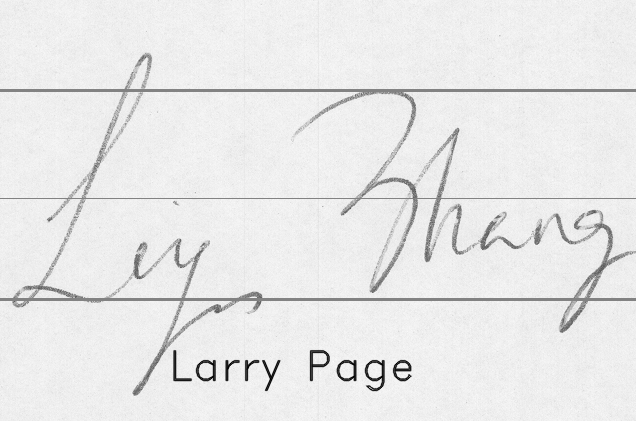 Zhang
Larry Page